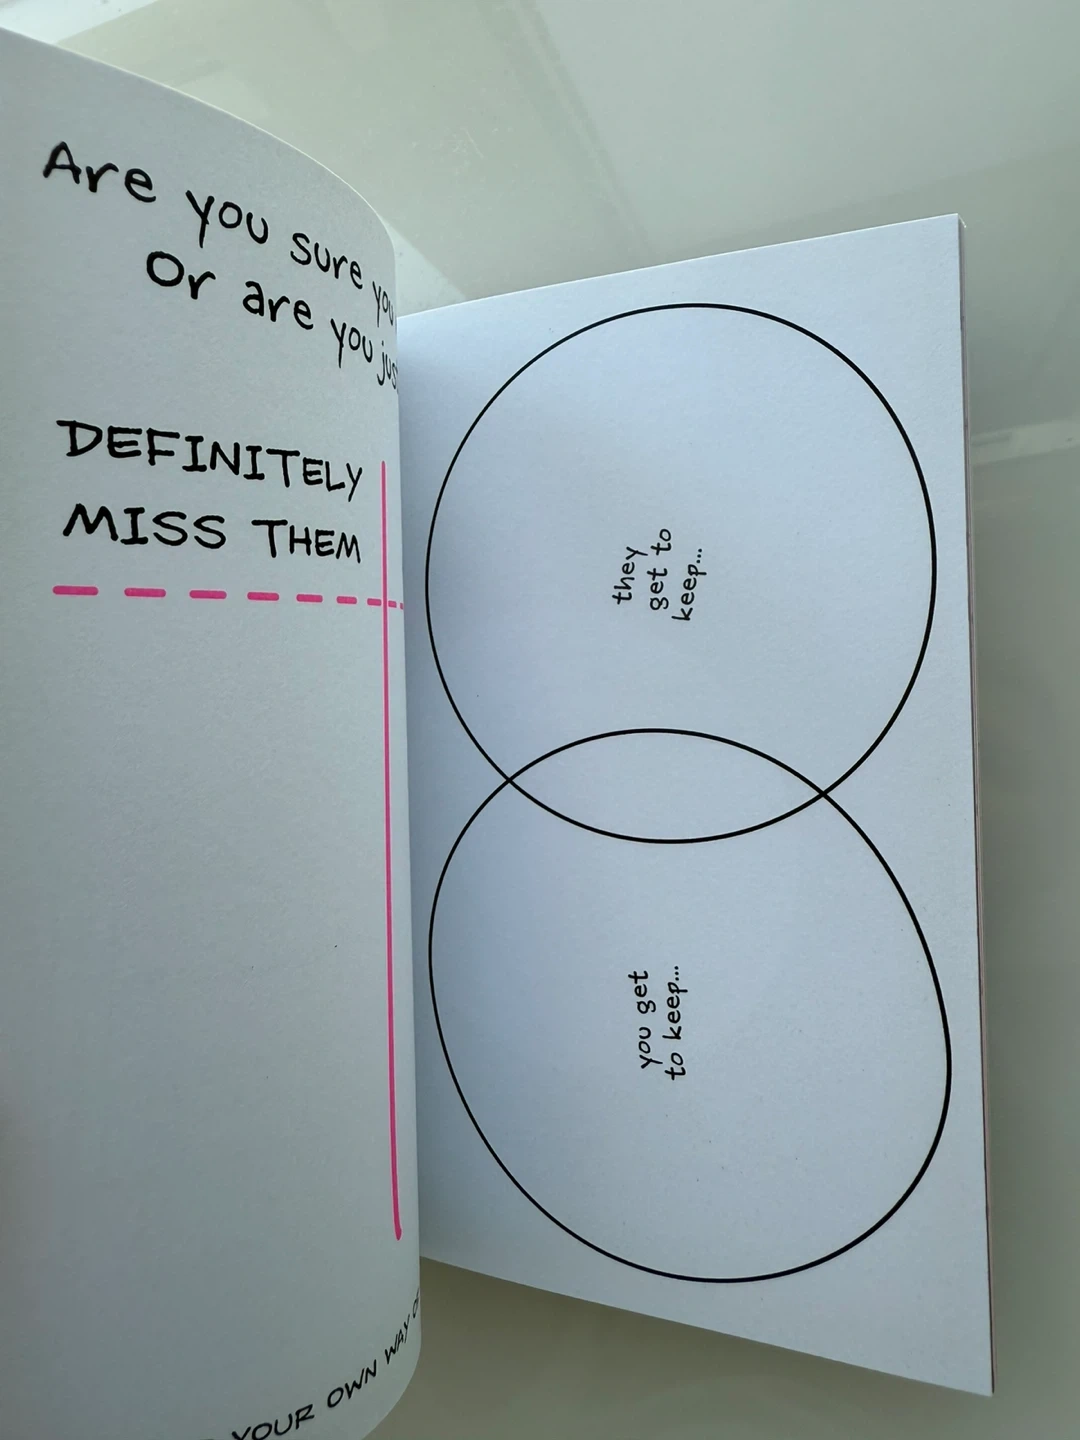 Are you sure you
Or are you
DEFINITELY
MISS THEM
YOUR OWN WAY
they
get to
keep...
you get
to keep...